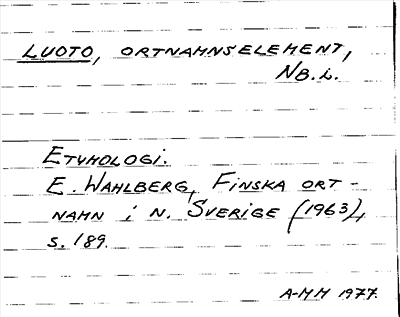 LUOTO, ORTNAMNSELEMENT,
NB.L.
ETYMOLOGI.
E. WAHLBERG, FINSKA ORT-
NAMN i N. SVERIGE (1963),
S. 189.
A-MM 1977.